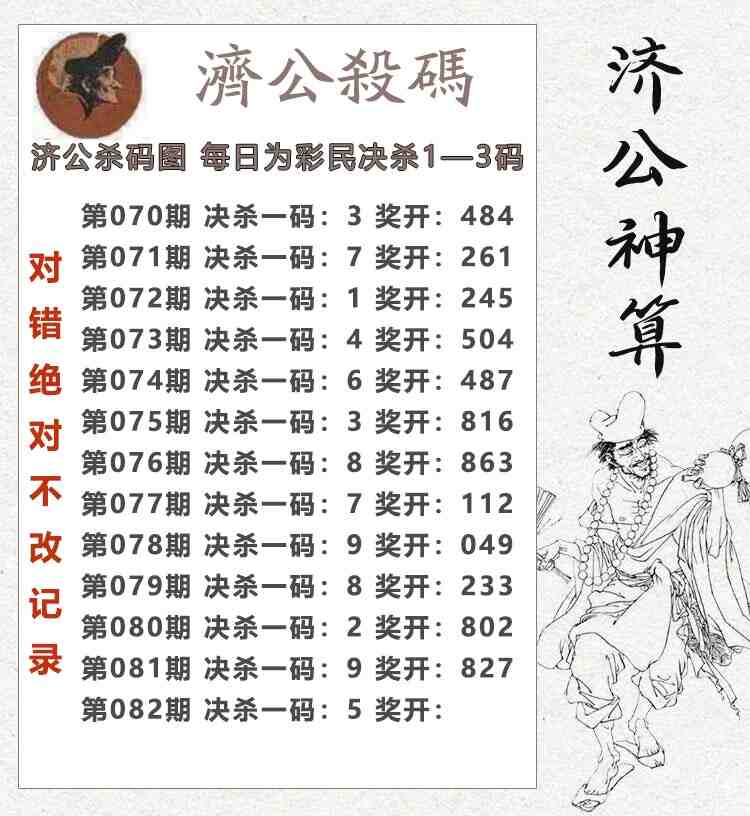 濟公殺碼
济公杀码图 每日为彩民决杀1—3码
第070期 决杀一码：3 奖开：484
第071期 决杀一码：7 奖开：261
第072期 决杀一码：1 奖开：245
第073期 决杀一码：4 奖开：504
第074期 决杀一码：6 奖开：487
第075期 决杀一码：3 奖开：816
第076期 决杀一码：8 奖开：863
第077期 决杀一码：7 奖开：112
第078期 决杀一码：9 奖开：049
第079期 决杀一码：8 奖开：233
第080期 决杀一码：2 奖开：802
第081期 决杀一码：9 奖开：827
第082期 决杀一码：5 奖开：
对错绝对不改记录
济公神算